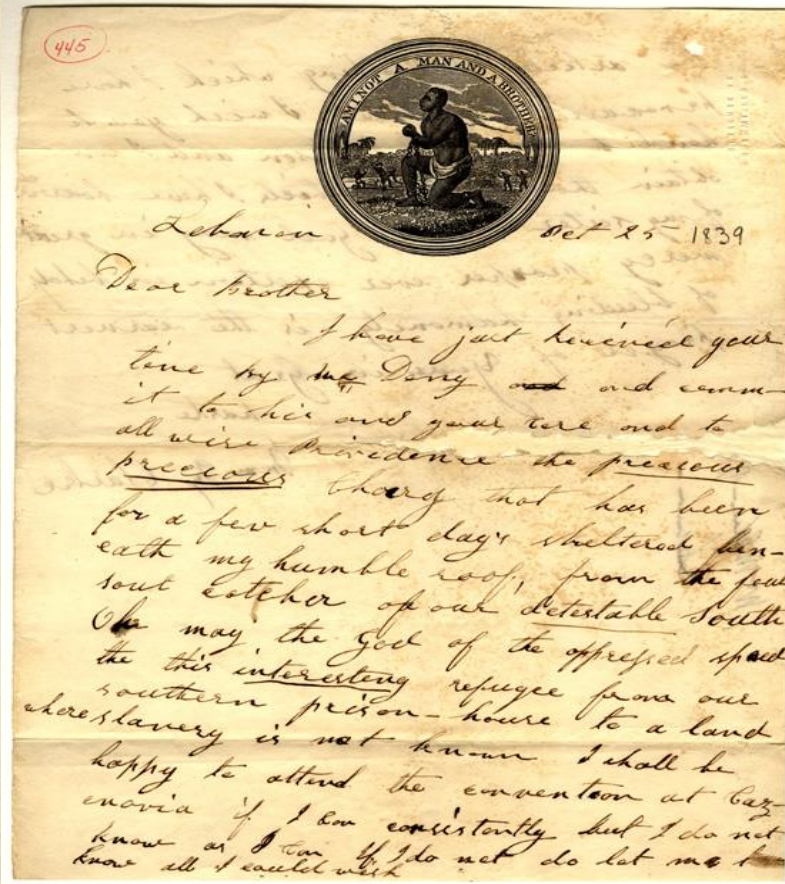 445
AM I NOT A MAN AND A BROTHER
Lebanon Oct 25 1839
Dear Brother
I have just received your
line by Deny and comm-
it to his and your care and to
all wise Providence the precious
precious Charg that has been
for a few short day's sheltered ben-
eath my humble roof, from the foul
soul catcher of our detestable South
Oh may the God of the oppressed speed
the this interesting refugee from our
southern prison-house to a land
where slavery is not known I shall be
happy to attend the convention at Caz-
enovia if I can consistently but I do not
know as I can If I do not do let me
know all I could wish